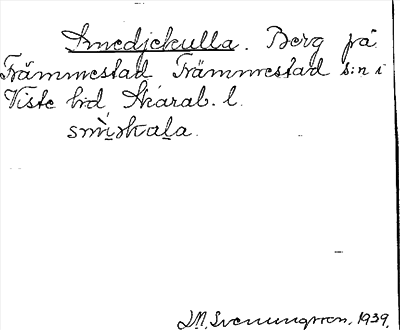 Smedjekulla. Berg på
Främmestad Främmestad s:n i
Viste hd, Skarab. l.
smìskala.
1939.